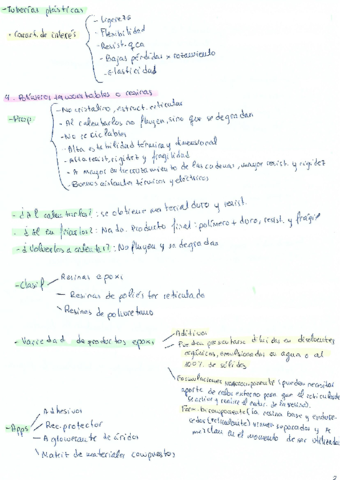 - Tuberías plásticas
- Caract. de interés
- Ligereza
- Flexibilidad
- Resist. qca
- Bajas pérdidas x rozamiento
- Elasticidad
4. Polímeros termoestables o resinas
- Prop
- No cristalino, estruct. reticular
- Al calentarlos no fluyen, sino que se degradan
- No reciclables
- Alta estabilidad térmica y dimensional
- Alta resist, rigidez y fragilidad
- A mayor entrecruzamiento de las cadenas, mayor resist. y rigidez
- Buenos aislantes térmicos y eléctricos
- ¿Al calentarlo?: se obtiene material duro y resist.
- ¿Al enfriarlos?: Nada. Producto final: polímero + duro, resist. y frágil
- ¿Volverlos a calentar?: No fluyen y se degradan
- Clasif
- Resinas epoxi
- Resinas de poliéster reticulado
- Resinas de poliuretano
- Variedad de productos epoxi
- Aditivos
- Pueden presentarse diluidos en disolventes
orgánicos, emulsionados en agua o al
100% de sólidos
- Formulaciones monocomponente (pueden necesitar
aporte de calor externo para que el reticulante
se active y reticule el resto de la resina).
Form. bicomponente (la resina base y endure-
cedor (reticulante) vienen separados y se
mezclan en el momento de ser utilizados
- Apps
- Adhesivos
- Rec. protector
- Aglomerante de áridos
- Matriz de materiales compuestos
2